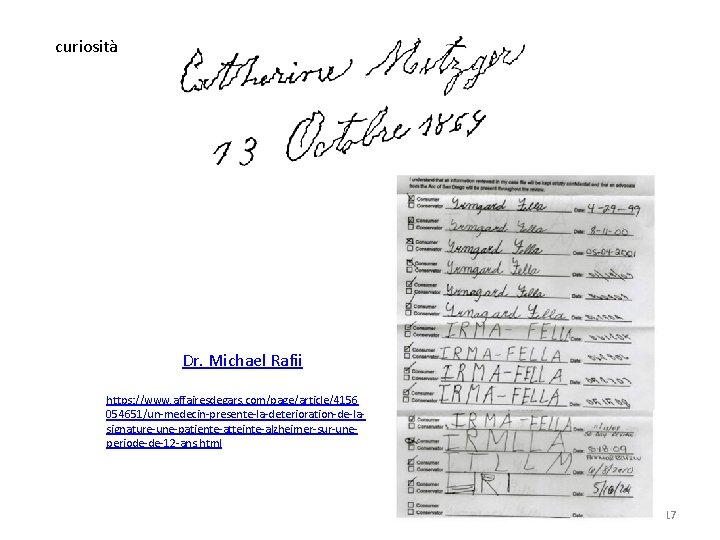 curiosità
Catherine Metzger
13 Octobre 1869
I understand that all information reviewed in my case file will be kept strictly confidential and that an advocate
from the Arc of San Diego will be present throughout the review.
Consumer
Conservator Irmgard Fella Date: 4-29-99
Consumer
Conservator Irmgard Fella Date: 8-11-00
Consumer
Conservator Irmgard Fella Date: 05-04-2001
Consumer
Conservator Irmgard Fella Date:
Consumer
Conservator Irmgard Fella Date:
Consumer
Conservator Irmgard Fella Date:
Consumer
Conservator IRMA-FELLA Date:
Consumer
Conservator IRMA-FELLA Date:
Consumer
Conservator IRMA-FELLA Date:
Consumer
Conservator IRMA-FELLA Date:
Consumer
Conservator IRMA-FELLA Date:
Consumer
Conservator IRMLLA Date: 8-18-09
Consumer
Conservator I L L M Date: 6/8/2010
Consumer
Conservator Date:
Consumer
Conservator Date:
Dr. Michael Rafii
https://www.affairesdegars.com/page/article/4156
054651/un-medecin-presente-la-deterioration-de-la-
signature-une-patiente-atteinte-alzheimer-sur-une-
periode-de-12-ans.html
17